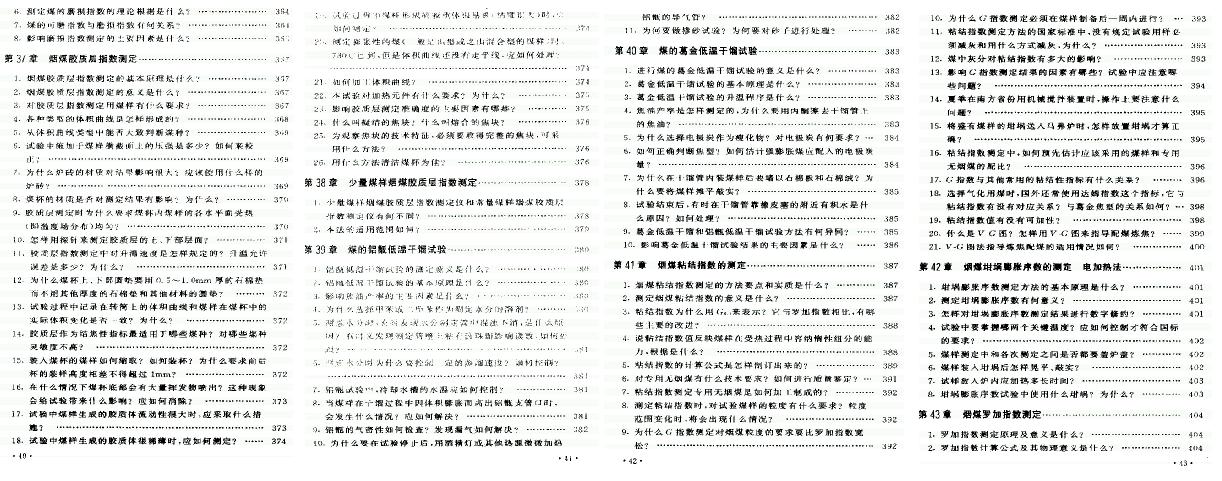 6. 测定煤的磨损指数的理论根据是什么? 364
7. 煤的可磨指数与磨损指数有何关系? 364
8. 影响磨损指数测定的主要因素是什么?
第37章 烟煤胶质层指数测定
1. 烟煤胶质层指数测定的基本原理是什么? 367
2. 烟煤胶质层指数测定的意义是什么? 367
3. 对胶质层指数测定用煤样有什么要求? 367
4. 各种类型的体积曲线是怎样形成的? 368
5. 从体积曲线类型中能否大致判断煤种? 369
6. 试验中施加于煤样横截面上的压强是多少? 如何来校
正? 369
7. 为什么炉砖的材质对结果影响很大? 应该使用什么样的
炉砖? 369
8. 煤杯的材质是否对测定结果有影响? 为什么? 370
9. 胶质层测定时为什么要求煤杯内煤样的各水平面受热
(即温度场分布)均匀?
10. 怎样用探针来测定胶质层的上、下部层面? 371
11. 胶质层指数测定中对升温速度是怎样规定的? 升温允许
误差是多少? 为什么? 371
12. 为什么煤杯上、下部圆垫要用 0.5~1.0mm 厚的石棉垫
而不用其他厚度的石棉垫和其他材料的圆垫? 372
13. 试验过程中记录在转筒上的体积曲线和煤样在煤杯中的
实际体积变化是否一致? 为什么? 372
14. 胶质层作为结焦性指标最适用于哪些煤种? 对哪些煤种
灵敏度不高? 372
15. 装入煤杯的煤样如何缩取? 如何装杯? 为什么要求前后
杯的装样高度相差不得超过 1mm? 372
16. 在什么情况下煤杯底部会有大量挥发物喷出? 这种现象
会给试验带来什么影响? 应如何消除? 373
17. 试验中煤样生成的胶质体流动性很大时,应采取什么措
施? 373
18. 试验中煤样生成的胶质体很稀薄时,应如何测定? 374
·40·
如何测定? 374
374
21. 如何加工体积曲线? 375
22. 本试验对加热元件有什么要求? 为什么? 375
23. 影响胶质层测定准确度的主要因素有哪些? 375
24. 什么叫凝结的焦块? 什么叫熔合的焦块?
25. 为观察焦块的技术特征,必须要取得完整的焦块,可采
用什么方法? 376
26. 用什么方法清洁煤杯为佳? 376
第38章 少量煤样烟煤胶质层指数测定 378
1. 少量煤样烟煤胶质层指数测定仪和常量煤样烟煤胶质层
指数测定仪有何不同? 378
2. 本法的适用范围如何?
第39章 煤的铝甑低温干馏试验 380
1. 铝甑低温干馏试验的测定意义是什么? 380
2. 铝甑低温干馏试验的基本原理是什么?
3. 影响焦油产率的主要因素是什么?
381
7. 铝甑试验中,冷却水槽的水温应如何控制? 381
8. 当煤样在干馏过程中因体积膨胀而高出铝甑支管口时,
会发生什么情况? 应如何解决? 381
9. 铝甑的气密性如何检查? 发现漏气如何解决? 382
10. 为什么要在试验停止后,用酒精灯或其他热源微微加热
·41·
铝甑的导气管? 382
11. 为何要做掺砂试验? 为何要对砂子进行处理? 382
第40章 煤的葛金低温干馏试验 383
1. 进行煤的葛金低温干馏试验的意义是什么? 383
2. 葛金低温干馏试验的基本原理是什么? 383
3. 葛金低温干馏试验的升温程序是什么? 383
4. 焦油产率是怎样测定的,为什么要用丙酮洗去干馏管上
的焦油? 383
5. 为什么选择电极炭作为瘦化物? 对电极炭有何要求? 384
6. 如何正确判断焦型? 如何估计强膨胀煤应配入的电极炭
量? 384
7. 为什么在干馏管内装煤样后要塞以石棉板和石棉绒? 为
什么要将煤样推平敲实? 385
8. 试验结束后,有时在干馏管靠橡皮塞的附近有积水是什
么原因? 如何处理? 385
9. 葛金低温干馏和铝甑低温干馏试验方法有何异同? 385
10. 影响葛金低温干馏试验结果的主要因素是什么? 386
第41章 烟煤粘结指数的测定 387
1. 烟煤粘结指数测定的方法要点和实质是什么? 387
2. 测定烟煤粘结指数的意义是什么? 387
3. 粘结指数为什么用 G 来表示? 它与罗加指数相比,有哪
些主要的改进? 388
4. 说粘结指数值反映煤样在受热过程中容纳惰性组分的能
力,根据是什么? 388
5. 粘结指数的计算公式是怎样制订出来的? 389
6. 对专用无烟煤有什么技术要求? 如何进行质量鉴定? 391
7. 粘结指数测定专用无烟煤是如何加工制成的? 392
8. 测定粘结指数时,对试验煤样的粒度有什么要求? 粒度
范围变化时,将会出现什么情况? 392
9. 为什么 G 指数测定对烟煤粒度的要求要比罗加指数宽
松? 392
·42·
10. 为什么 G 指数测定必须在煤样制备后一周内进行? 393
11. 粘结指数测定方法的国家标准中,没有规定试验用样必
须减灰和用什么方式减灰,为什么? 393
12. 煤中灰分对粘结指数有多大的影响? 393
13. 影响 G 指数测定结果的因素有哪些? 试验中应注意哪
些问题? 394
14. 夏季在南方省份用机械搅拌装置时,操作上要注意什么
问题? 395
15. 将盛有煤样的坩埚送入马弗炉时,怎样放置坩埚才算正
确? 395
16. 粘结指数测定中,如何预先估计应该采用的煤样和专用
无烟煤的配比? 396
17. G 指数与其他常用的粘结性指标有什么关系? 396
18. 选择气化用煤时,国外还常使用达姆指数这个指标,它与
粘结指数有没有对应关系? 与葛金焦型的关系如何? 398
19. 粘结指数值有没有可加性? 398
20. 什么是 V-G 图? 怎样用 V-G 图来指导配煤炼焦? 399
21. V-G 图法指导炼焦配煤的适用情况如何? 400
第42章 烟煤坩埚膨胀序数的测定 电加热法 401
1. 坩埚膨胀序数测定方法的基本原理是什么? 401
2. 测定坩埚膨胀序数有何意义? 401
3. 怎样对坩埚膨胀序数测定结果进行数字修约? 401
4. 试验中要掌握哪两个关键温度? 应如何控制才符合国标
的要求? 402
5. 煤样测定中和各次测定之间是否都要盖炉盖? 402
6. 煤样装入坩埚后怎样晃平、敲实? 402
7. 试样放入炉内应加热多长时间? 403
8. 坩埚膨胀序数试验中使用什么坩埚? 为什么? 403
第43章 烟煤罗加指数测定 404
1. 罗加指数测定原理及意义是什么? 404
2. 罗加指数计算公式及其物理意义是什么? 404
·43·